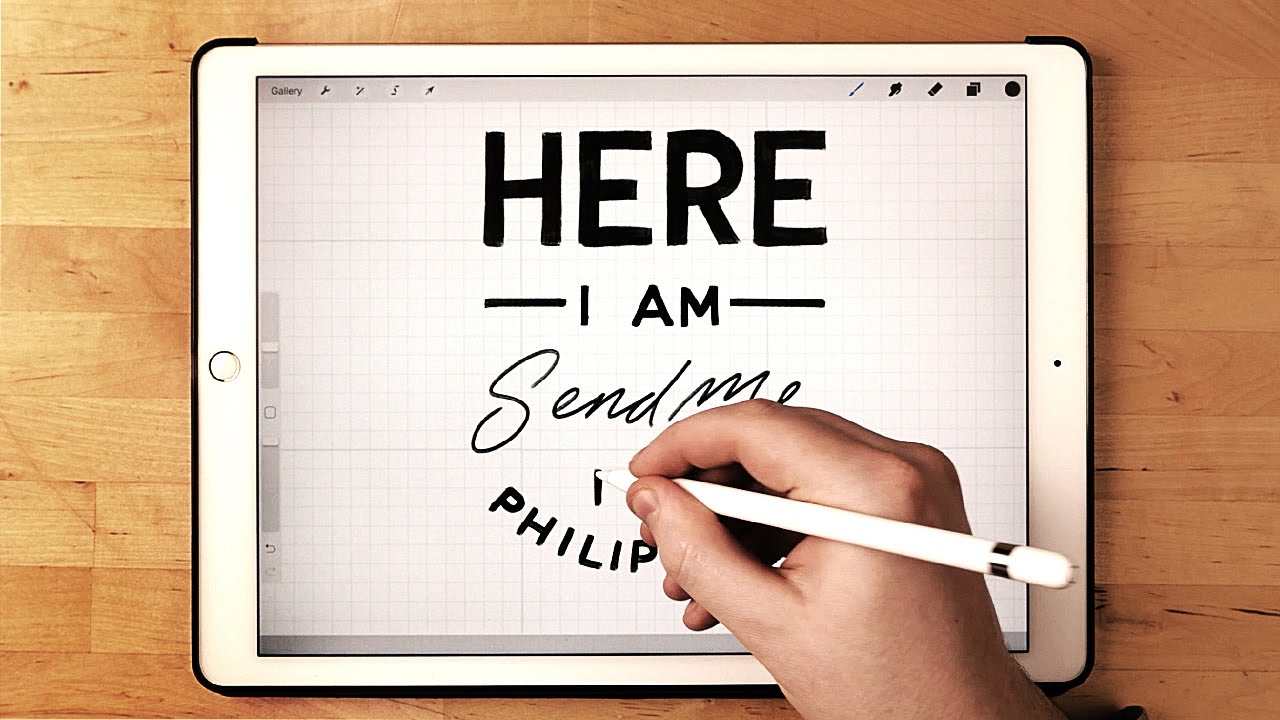 Gallery
HERE
I AM
Send Me